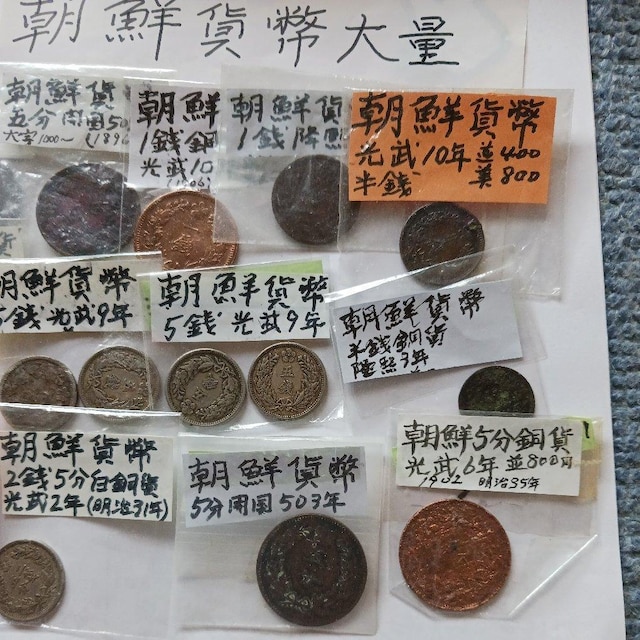 朝鮮貨幣大量
朝鮮貨
五分開国50
大字1000~ (189
朝鮮
1銭銅
光武10
朝鮮貨
1銭隆熙
朝鮮貨幣
光武10年 並400
半銭 美800
貨
朝鮮貨幣
5銭 光武9年
朝鮮貨幣
5銭 光武9年
朝鮮貨幣
半銭銅貨
隆熙3年
朝鮮貨幣
2銭5分白銅貨
光武2年(明治31年)
朝鮮貨幣
5分開国503年
朝鮮5分銅貨
光武6年 並800円
1902 明治35年